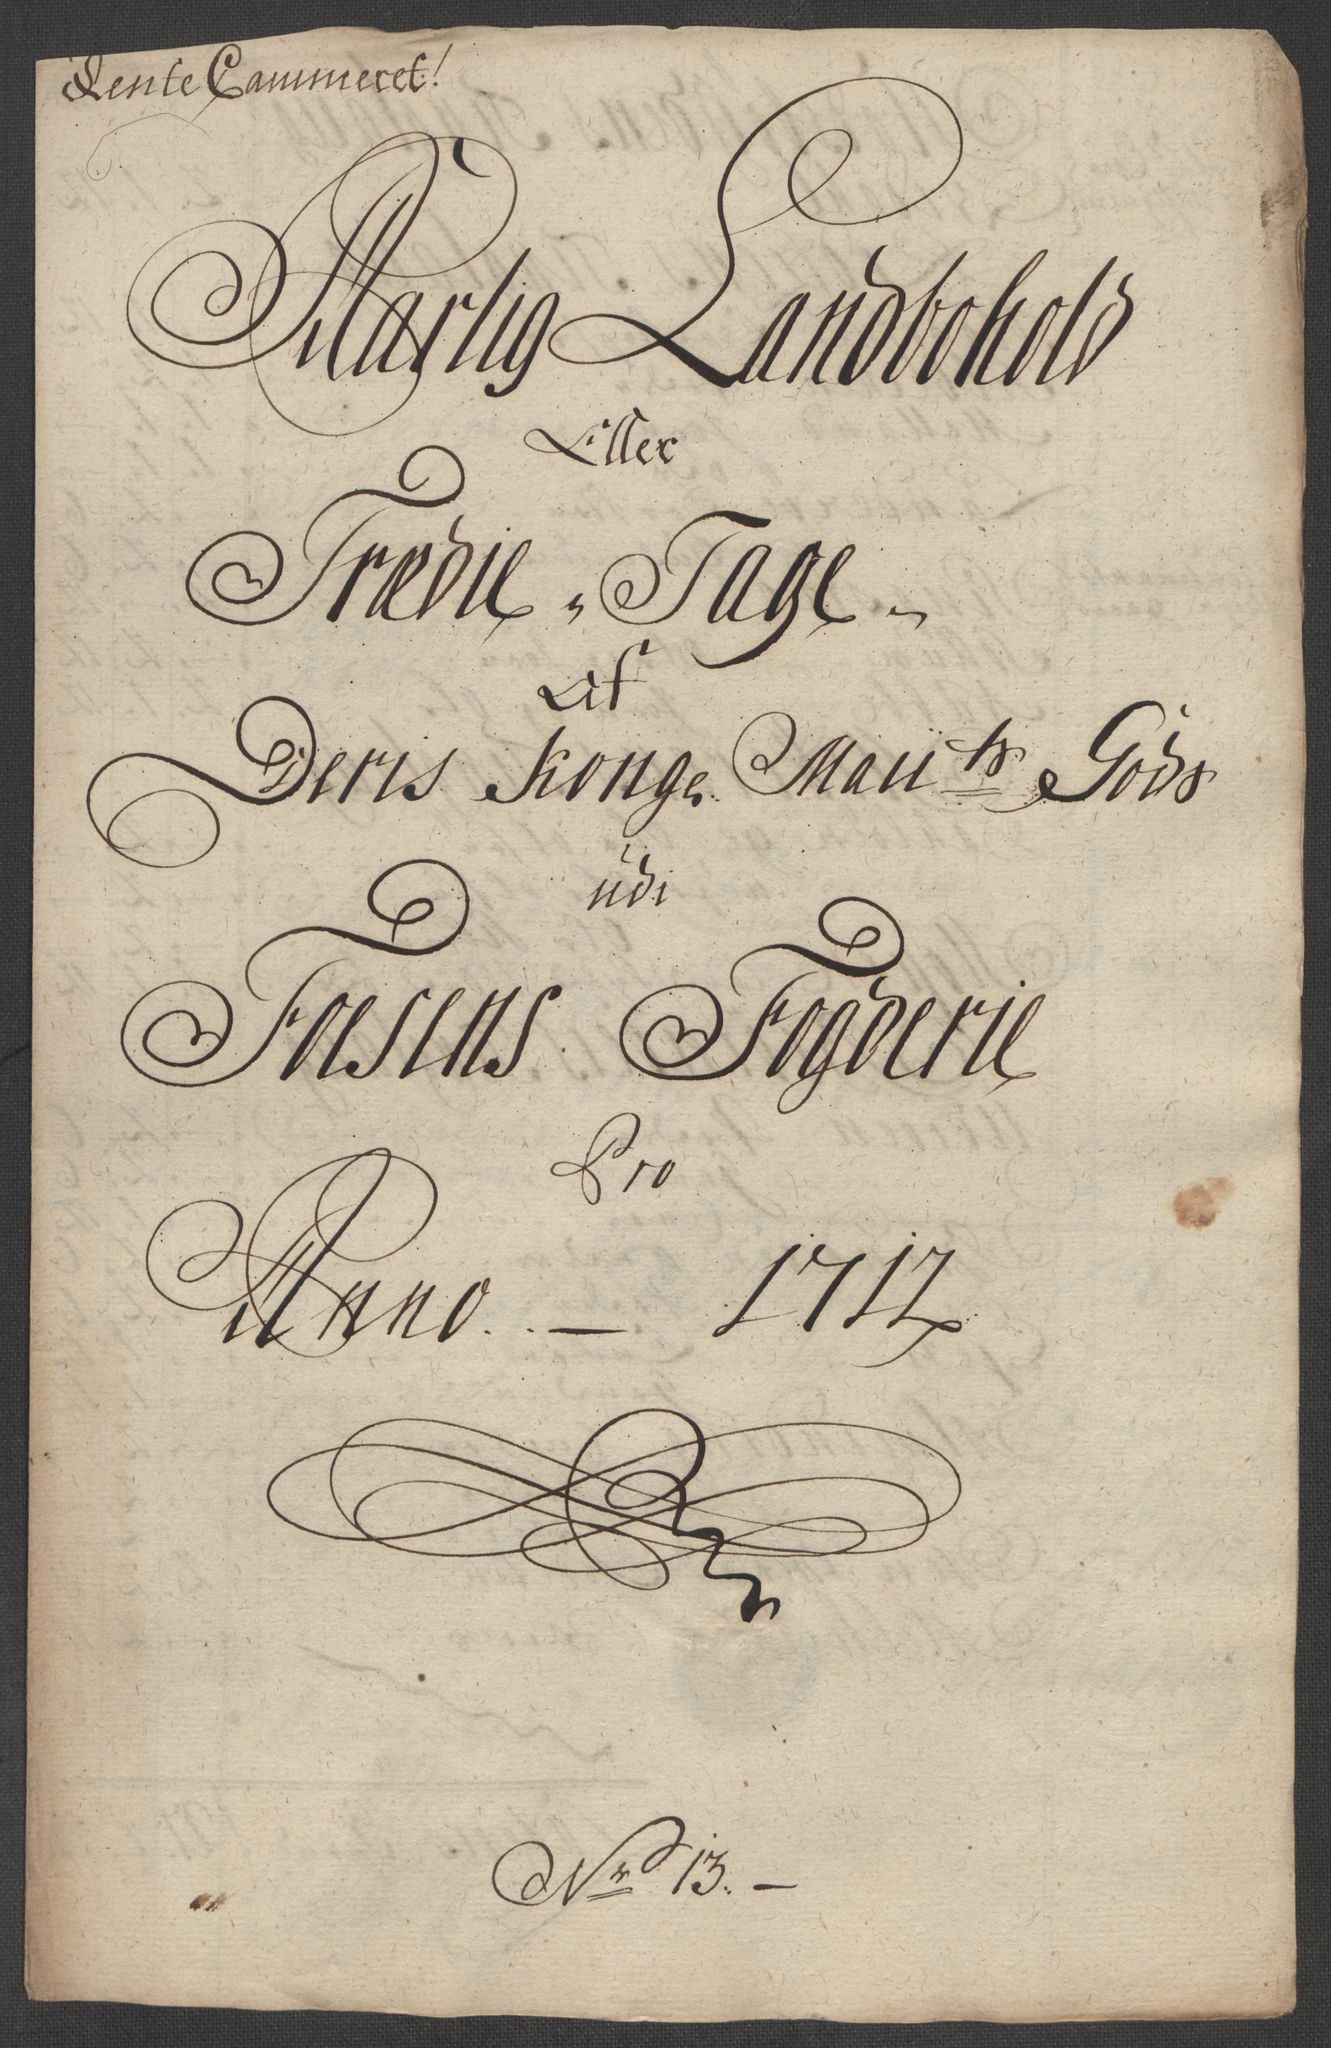 Rente Cammeret!
Aarlig Landbohold
Eller
Trædie, Tage
Af
Deris Konge. Maii.ts Gods
udi
Foesens Fogderie
Pro
Anno. - 1712
Nr. 13. -